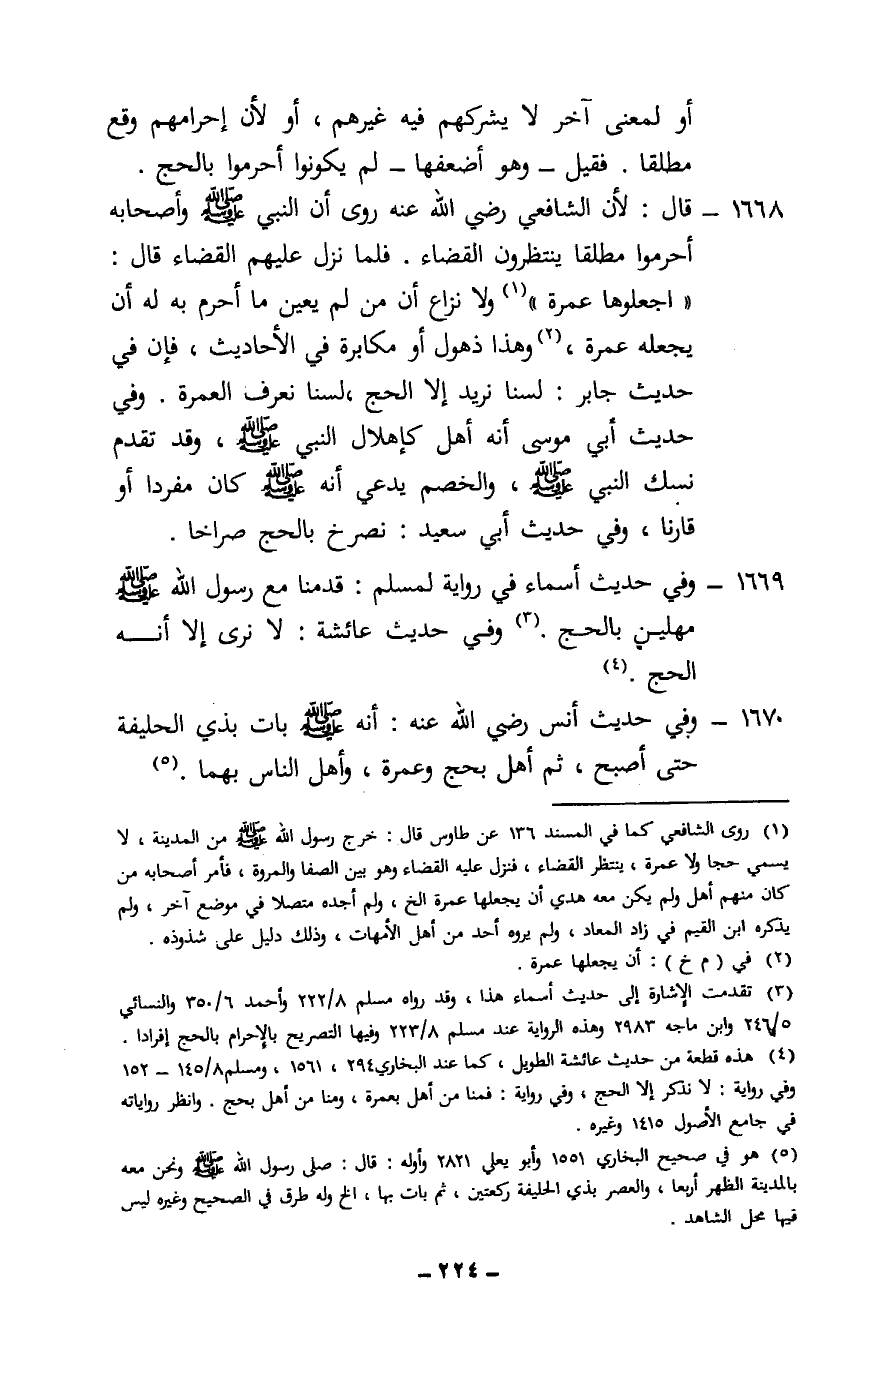 أو لمعنى آخر لا يشركهم فيه غيرهم ، أو لأن إحرامهم وقع
مطلقا . فقيل ــ وهو أضعفها ــ لم يكونوا أحرموا بالحج .
١٦٦٨ ــ قال : لأن الشافعي رضي الله عنه روى أن النبي ﷺ وأصحابه
أحرموا مطلقا ينتظرون القضاء . فلما نزل عليهم القضاء قال :
« اجعلوها عمرة »(١) ولا نزاع أن من لم يعين ما أحرم به له أن
يجعله عمرة ،(٢) وهذا ذهول أو مكابرة في الأحاديث ، فإن في
حديث جابر : لسنا نريد إلا الحج ،لسنا نعرف العمرة . وفي
حديث أبي موسى أنه أهل كإهلال النبي ﷺ ، وقد تقدم
نسك النبي ﷺ ، والخصم يدعي أنه ﷺ كان مفردا أو
قارنا ، وفي حديث أبي سعيد : نصرخ بالحج صراخا .
١٦٦٩ ــ وفي حديث أسماء في رواية لمسلم : قدمنا مع رسول الله ﷺ
مهلين بالحج .(٣) وفي حديث عائشة : لا نرى إلا أنــــه
الحج .(٤)
١٦٧٠ ــ وفي حديث أنس رضي الله عنه : أنه ﷺ بات بذي الحليفة
حتى أصبح ، ثم أهل بحج وعمرة ، وأهل الناس بهما .(٥)
(١) روى الشافعي كما في المسند ١٣٦ عن طاوس قال : خرج رسول الله ﷺ من المدينة ، لا
يسمي حجا ولا عمرة ، ينتظر القضاء ، فنزل عليه القضاء وهو بين الصفا والمروة ، فأمر أصحابه من
كان منهم أهل ولم يكن معه هدي أن يجعلها عمرة الخ ، ولم أجده متصلا في موضع آخر ، ولم
يذكره ابن القيم في زاد المعاد ، ولم يروه أحد من أهل الأمهات ، وذلك دليل على شذوذه .
(٢) في ( م خ ) : أن يجعلها عمرة .
(٣) تقدمت الإشارة إلى حديث أسماء هذا ، وقد رواه مسلم ٢٢٢/٨ وأحمد ٣٥٠/٦ والنسائي
٢٤٦/٥ وابن ماجه ٢٩٨٣ وهذه الرواية عند مسلم ٢٢٣/٨ وفيها التصريح بالإحرام بالحج إفرادا .
(٤) هذه قطعة من حديث عائشة الطويل ، كما عند البخاري٢٩٤ ، ١٥٦١ ، ومسلم١٤٥/٨ ــ ١٥٢
وفي رواية : لا نذكر إلا الحج ، وفي رواية : فمنا من أهل بعمرة ، ومنا من أهل بحج . وانظر رواياته
في جامع الأصول ١٤١٥ وغيره .
(٥) هو في صحيح البخاري ١٥٥١ وأبو يعلي ٢٨٢١ وأوله : قال : صلى رسول الله ﷺ ونحن معه
بالمدينة الظهر أربعا ، والعصر بذي الحليفة ركعتين ، ثم بات بها ، الخ وله طرق في الصحيح وغيره ليس
فيها محل الشاهد .
ــ ٢٢٤ ــ